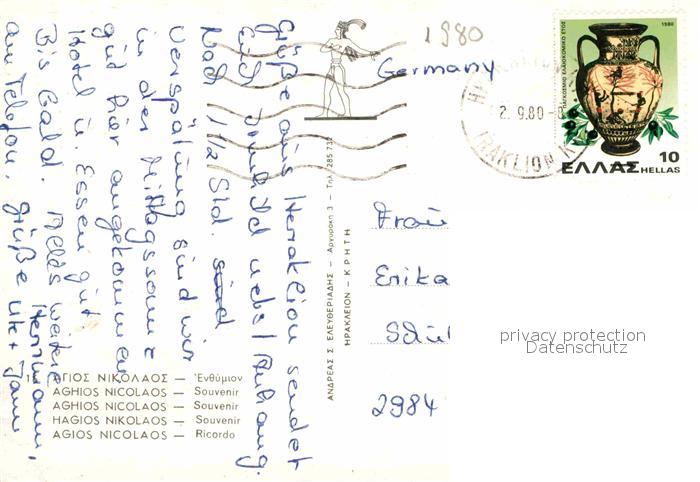 1980
Germany
2.9.80
IRAKLION
ΠΑΓΚΟΣΜΙΟ ΕΛΑΙΟΚΟΜΙΚΟ ΕΤΟΣ
1980
ΕΛΛΑΣ HELLAS 10
Grüße aus Heraklion sendet
Euch Arnhold nebst Anhang.
Nach 1 1/2 Std.
Verspätung sind wir
in der Mittagssonne
gut hier angekommen
Hotel u. Essen gut
Bis bald. Alles weitere
am Telefon. Grüße
Hermann,
Ulk + Jann
Frau
Erika
2984
privacy protection
Datenschutz
ΑΝΔΡΕΑΣ Σ. ΕΛΕΥΘΕΡΙΑΔΗΣ — Αργυράκη 3 — Τηλ. 285.732
ΗΡΑΚΛΕΙΟΝ - ΚΡΗΤΗ
ΑΓΙΟΣ ΝΙΚΟΛΑΟΣ — Ἐνθύμιον
AGHIOS NICOLAOS — Souvenir
AGHIOS NICOLAOS — Souvenir
HAGIOS NIKOLAOS — Souvenir
AGIOS NICOLAOS — Ricordo